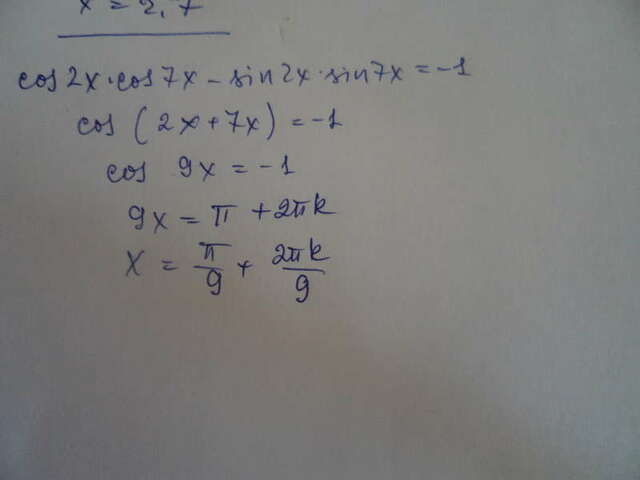 x = 2,7
cos2x·cos7x - sin2x·sin7x = -1
cos (2x+7x) = -1
cos 9x = -1
9x = π + 2πk
x = π/9 + 2πk/9